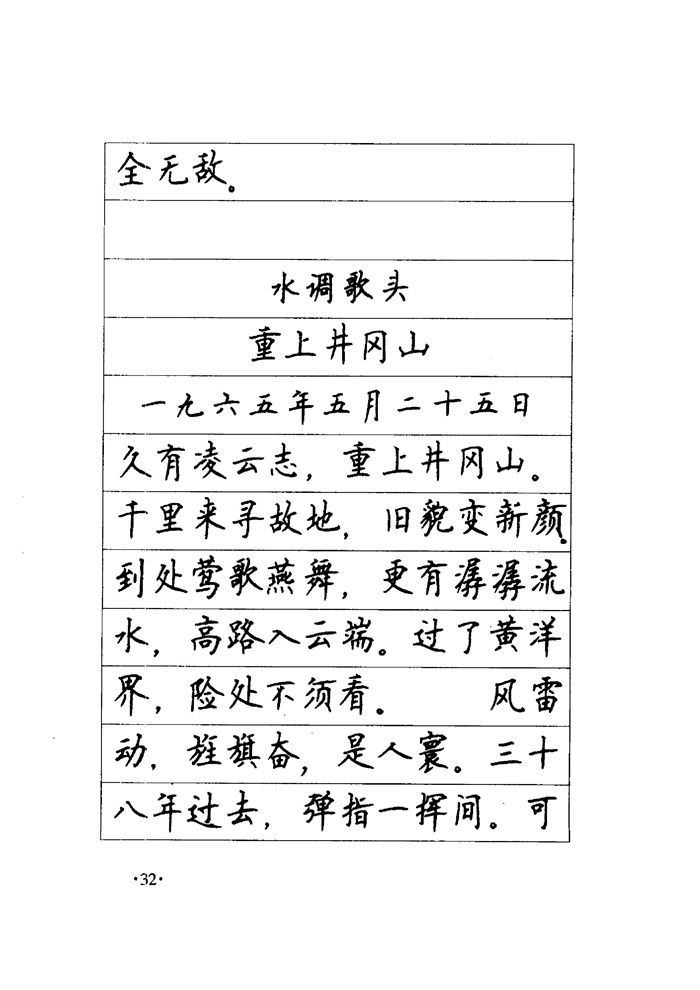 全无敌。
水调歌头
重上井冈山
一九六五年五月二十五日
久有凌云志，重上井冈山。
千里来寻故地，旧貌变新颜。
到处莺歌燕舞，更有潺潺流
水，高路入云端。过了黄洋
界，险处不须看。 风雷
动，旌旗奋，是人寰。三十
八年过去，弹指一挥间。可
·32·